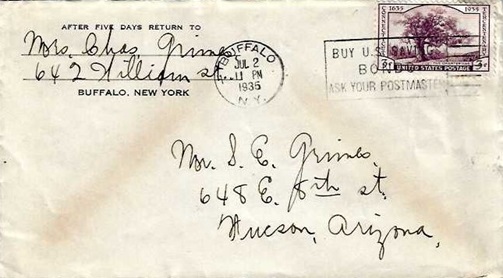 AFTER FIVE DAYS RETURN TO
Mrs. Chas Grimes
642 William st.
BUFFALO, NEW YORK
BUFFALO
JUL 2
11 PM
1935
N.Y.
BUY U.S. SAVI
BON
ASK YOUR POSTMASTER
1635 1935
UNITED STATES POSTAGE
Mr. S. E. Grimes,
648 E. 8th st.
Tucson, Arizona.